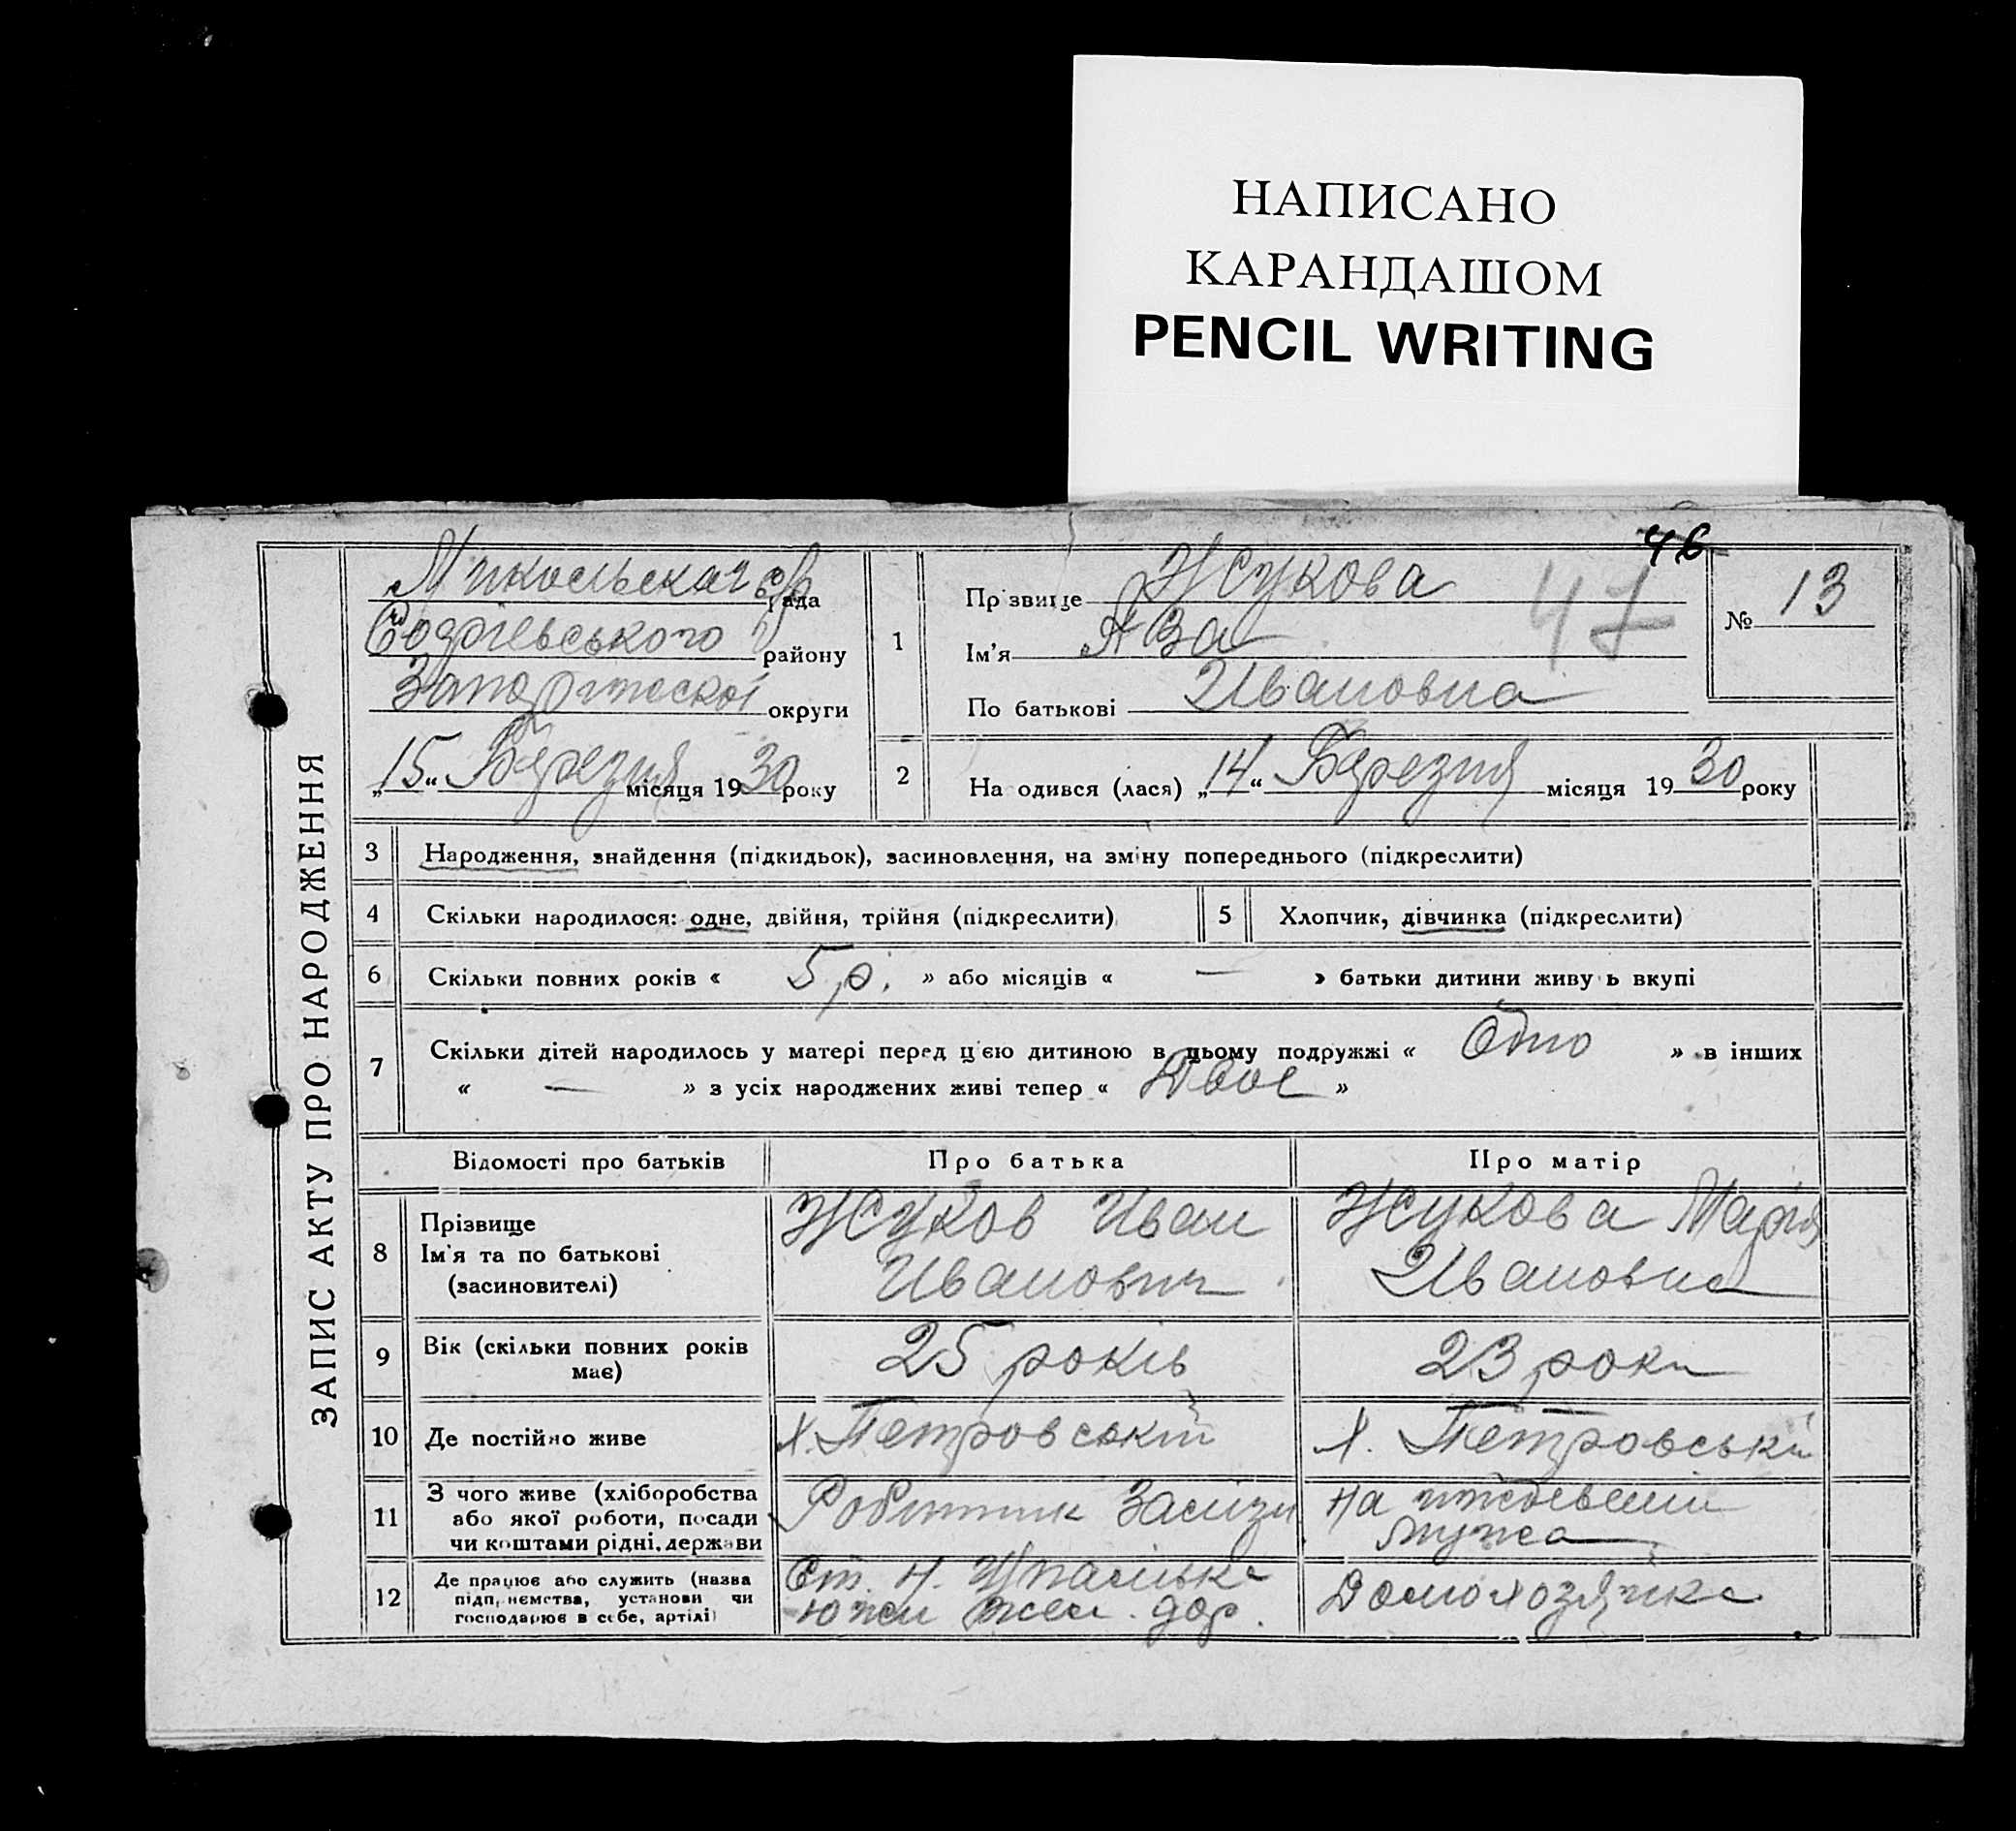 НАПИСАНО
КАРАНДАШОМ
PENCIL WRITING
46
47
ЗАПИС АКТУ ПРО НАРОДЖЕННЯ
Микольская с/р рада
району
округи
„15“ Березня місяця 1930 року
1
Прізвище Жукова
Ім’я Аза
По батькові Ивановна
№ 13
2
На одився (лася) „14“ Березня місяця 1930 року
3 Народження, знайдення (підкидьок), засиновлення, на зміну попереднього (підкреслити)
4 Скільки народилося: одне, двійня, трійня (підкреслити)
5 Хлопчик, дівчинка (підкреслити)
6 Скільки повних років « 5 р. » або місяців « — » батьки дитини живу ь вкупі
7 Скільки дітей народилось у матері перед цією дитиною в цьому подружжі « Одно » в інших
« — » з усіх народжених живі тепер « Двое »
Відомості про батьків
Про батька
Про матір
8
Прізвище
Ім’я та по батькові
(засиновителі)
Жуков Иван
Иванович
Жукова Марія
Ивановна
9
Вік (скільки повних років
має)
25 років
23 роки
10 Де постійно живе
х. Петровський
х. Петровській
11
З чого живе (хліборобства
або якої роботи, посади
чи коштами рідні, держави
Робітник
На
мужа
12
Де працює або служить (назва
підприємства, установи чи
господарює в себе, артілі)
Ст. Н.
южн жел. дор.
Домохозяйка